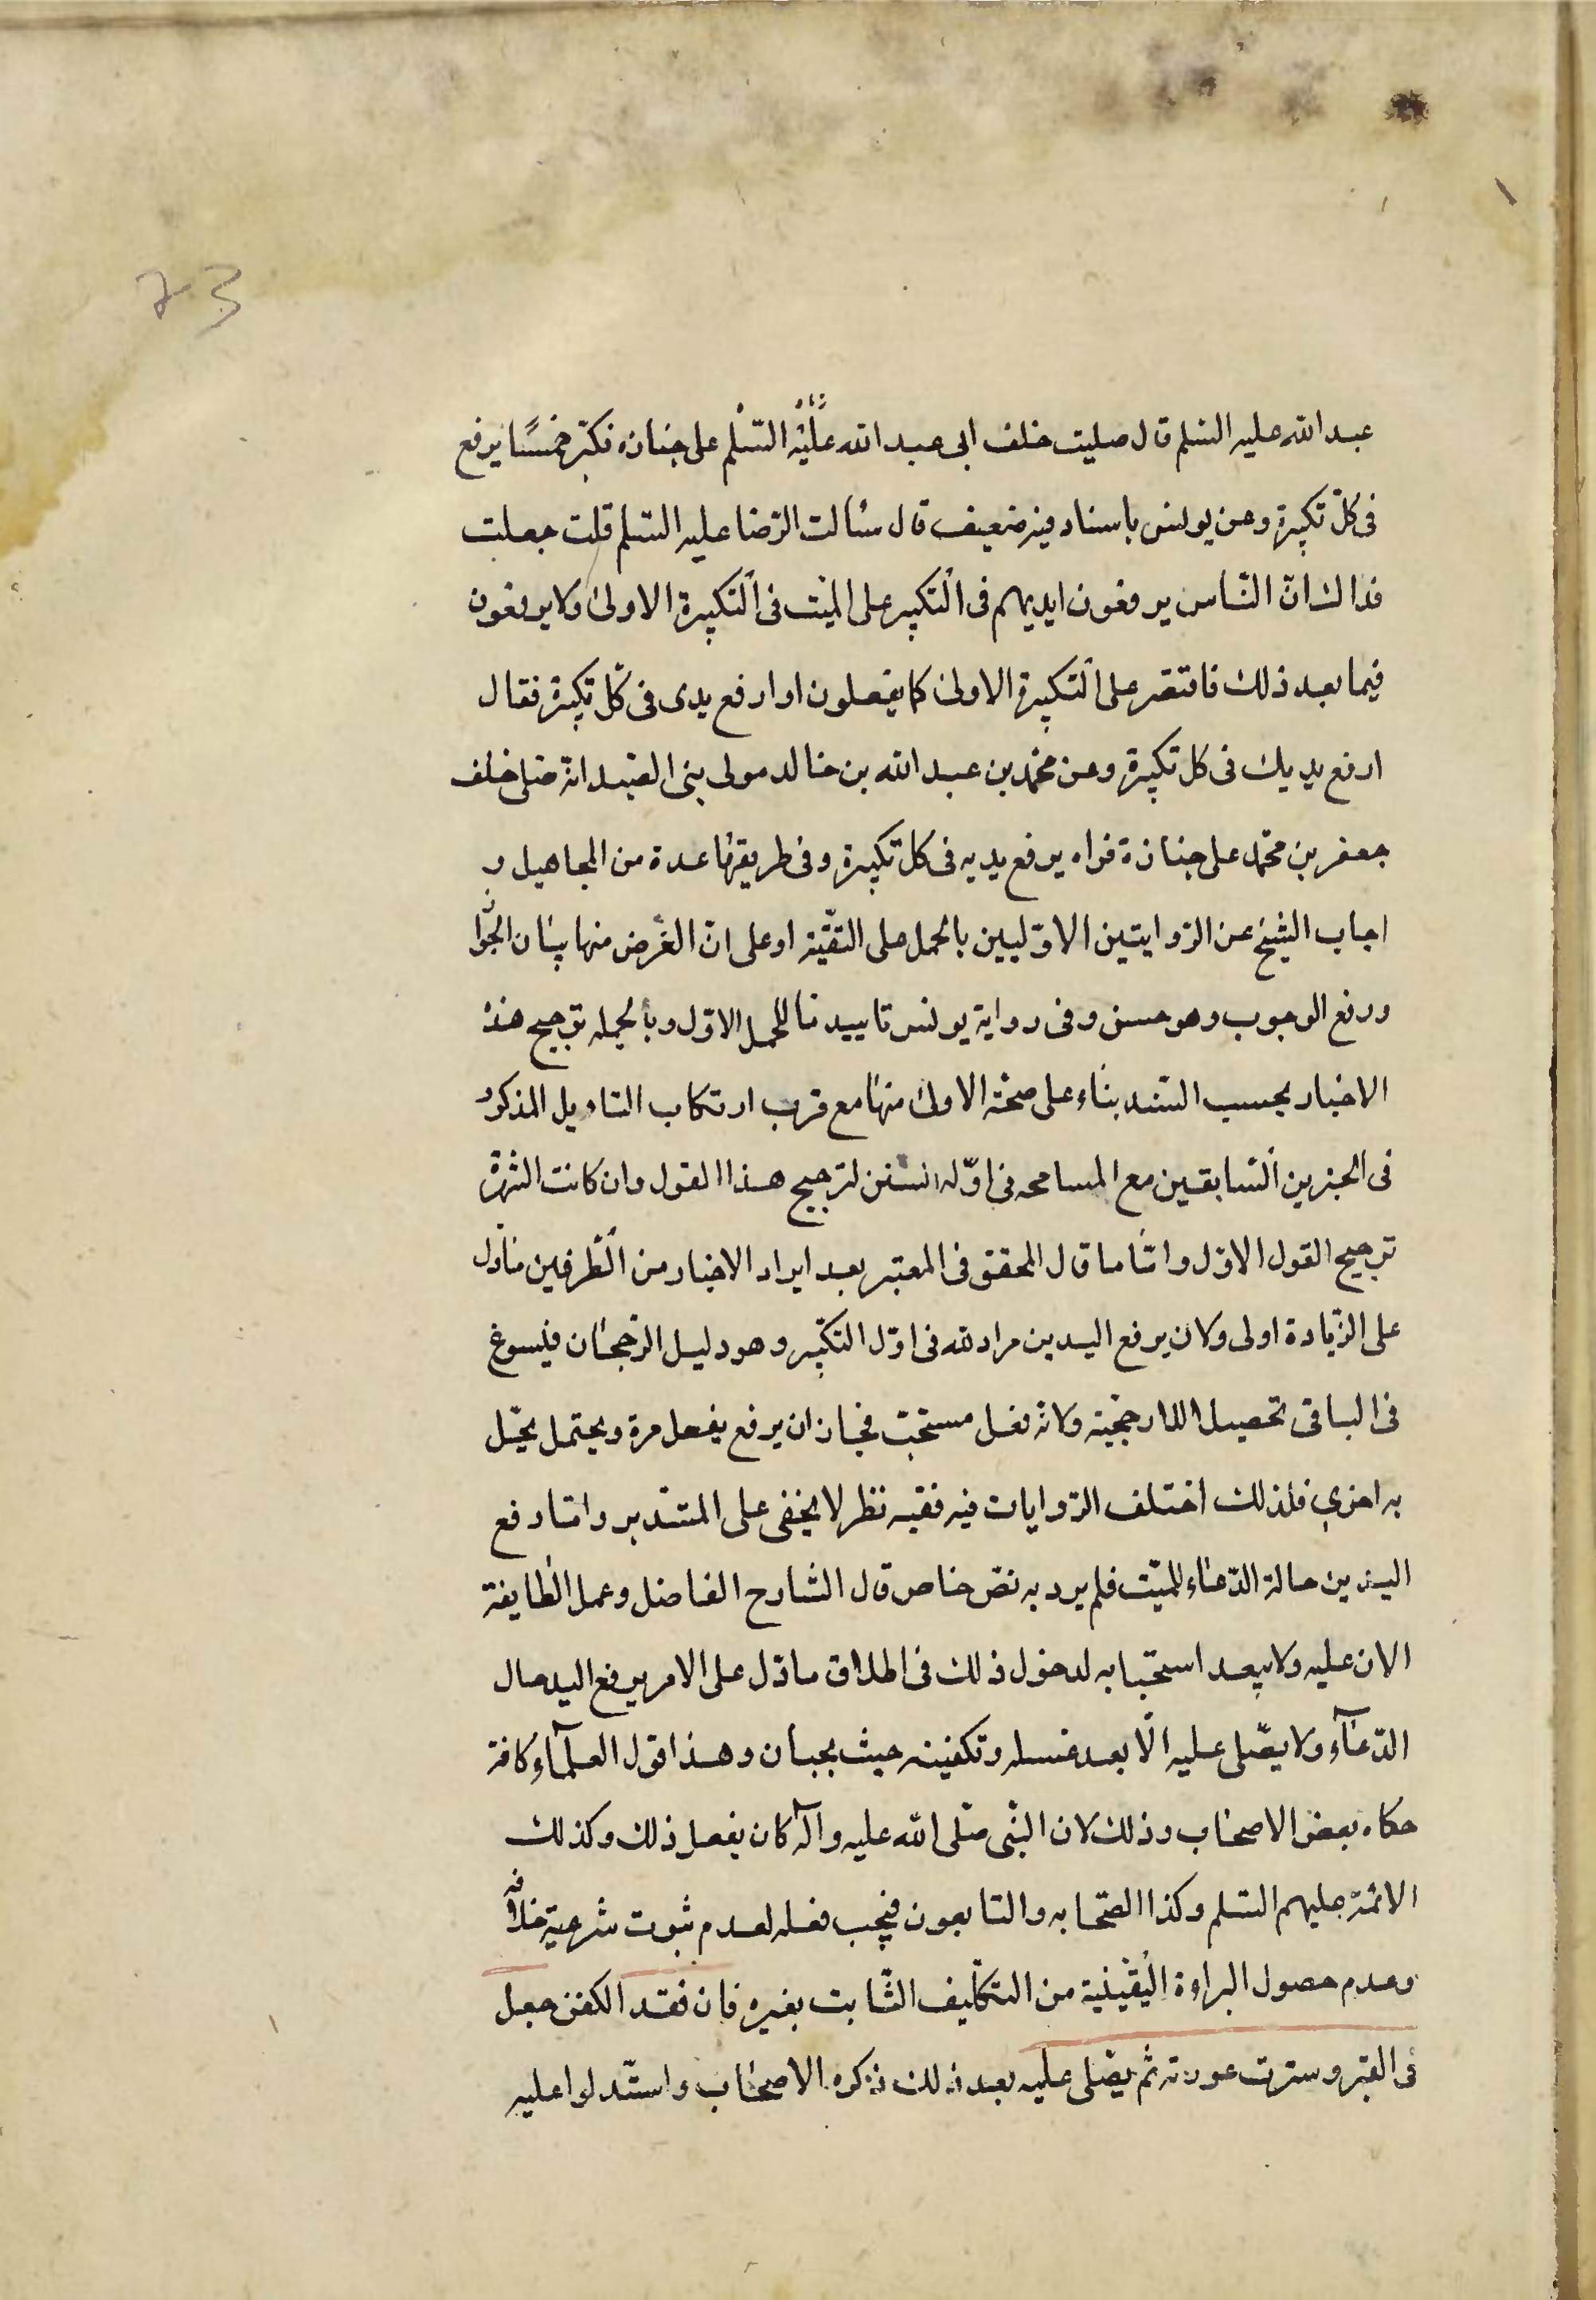 73
عبد الله عليه السلم قال صليت خلف ابى عبد الله عليه السّلم على جنازه فكبّر خمسًا يرفع
فى كلّ تكبيرة وعن يونس باسناد فيه ضعيف قال سئالت الرّضا عليه السّلم قلت جعلت
فداك انّ النّاس يرفعون ايديهم فى التكبير على الميّت فى التكبيرة الاولى ولا يرفعون
فيما بعد ذلك فاقتصر على التكبيرة الاولى كما يفعلون او ارفع يدى فى كلّ تكبيرة فقال
ارفع يديك فى كل تكبيرة وعن محمّد بن عبد الله بن خالد مولى بنى الصّيد انه صلى خلف
جعفر بن محمّد على جنازة فراه يرفع يديه فى كل تكبيرة وفى طريقها عدة من المجاهيل و
اجاب الشيخ عن الرّوايتين الاوّليين بالحمل على التقيّة او على انّ الغرض منها بيان الجوا
ورفع الوجوب وهو حسن وفى رواية يونس تاييد ما للحمل الاوّل وبالجمله ترجيح هذه
الاخبار بحسب السّند بناء على صحّة الاولى منها مع قرب ارتكاب التاويل المذكور
فى الخبرين السّابقين مع المسامحه فى ادّله السنن لترجيح هذا القول وان كانت الشهرة
ترجيح القول الاوّل وامّا ما قال المحقق فى المعتبر بعد ايراد الاخبار من الطّرفين مادل
على الزّيادة اولى ولان يرفع اليدين مراد لله فى اوّل التكبّير وهو دليل الرّجحان فيسوغ
فى الباقى تحصيل الارجحيّة ولانّه فعل مستحبّ فجاز ان يرفع يفعل مرة ويحتمل يخّل
به اخرى فلذلك اختلف الرّوايات فيه ففيه نظر لا يخفى على المتدبر وامّا رفع
اليدين حالة الدّعاء للميّت فلم يرد به نصّ خاص قال الشارح الفاضل وعمل الطايفة
الان عليه ولا يبعد استحبابه لدخول ذلك فى اطلاق ما دّل على الامر برفع اليد حال
الدّعآء ولا يصّلى عليه الّا بعد غسله وتكفينه حيث يجبان وهذا قول العلمآء كافة
حكاه بعض الاصحاب وذلك لان النّبى صلّى الله عليه وآله كان يفعل ذلك وكذلك
الائمّة عليهم السّلم وكذا الصّحابه والتابعون فيجب فعله لعدم ثبوت شرعية خلافه
وعدم حصول البراءة اليقينية من التكليف الثّابت بغيره فان فقد الكفن جعل
فى القبر وسترت عورته ثم يصّلى عليه بعد ذلك ذكره الاصحاب واستدلوا عليه